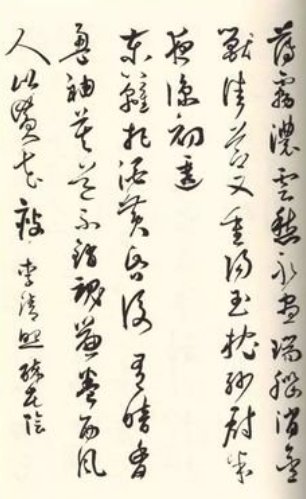 薄霧濃雲愁永晝瑞腦消金
獸佳節又重陽玉枕紗厨半
夜涼初透
東籬把酒黃昏後有暗香
盈袖莫道不銷魂簾卷西風
人比黃花瘦 李清照醉花陰